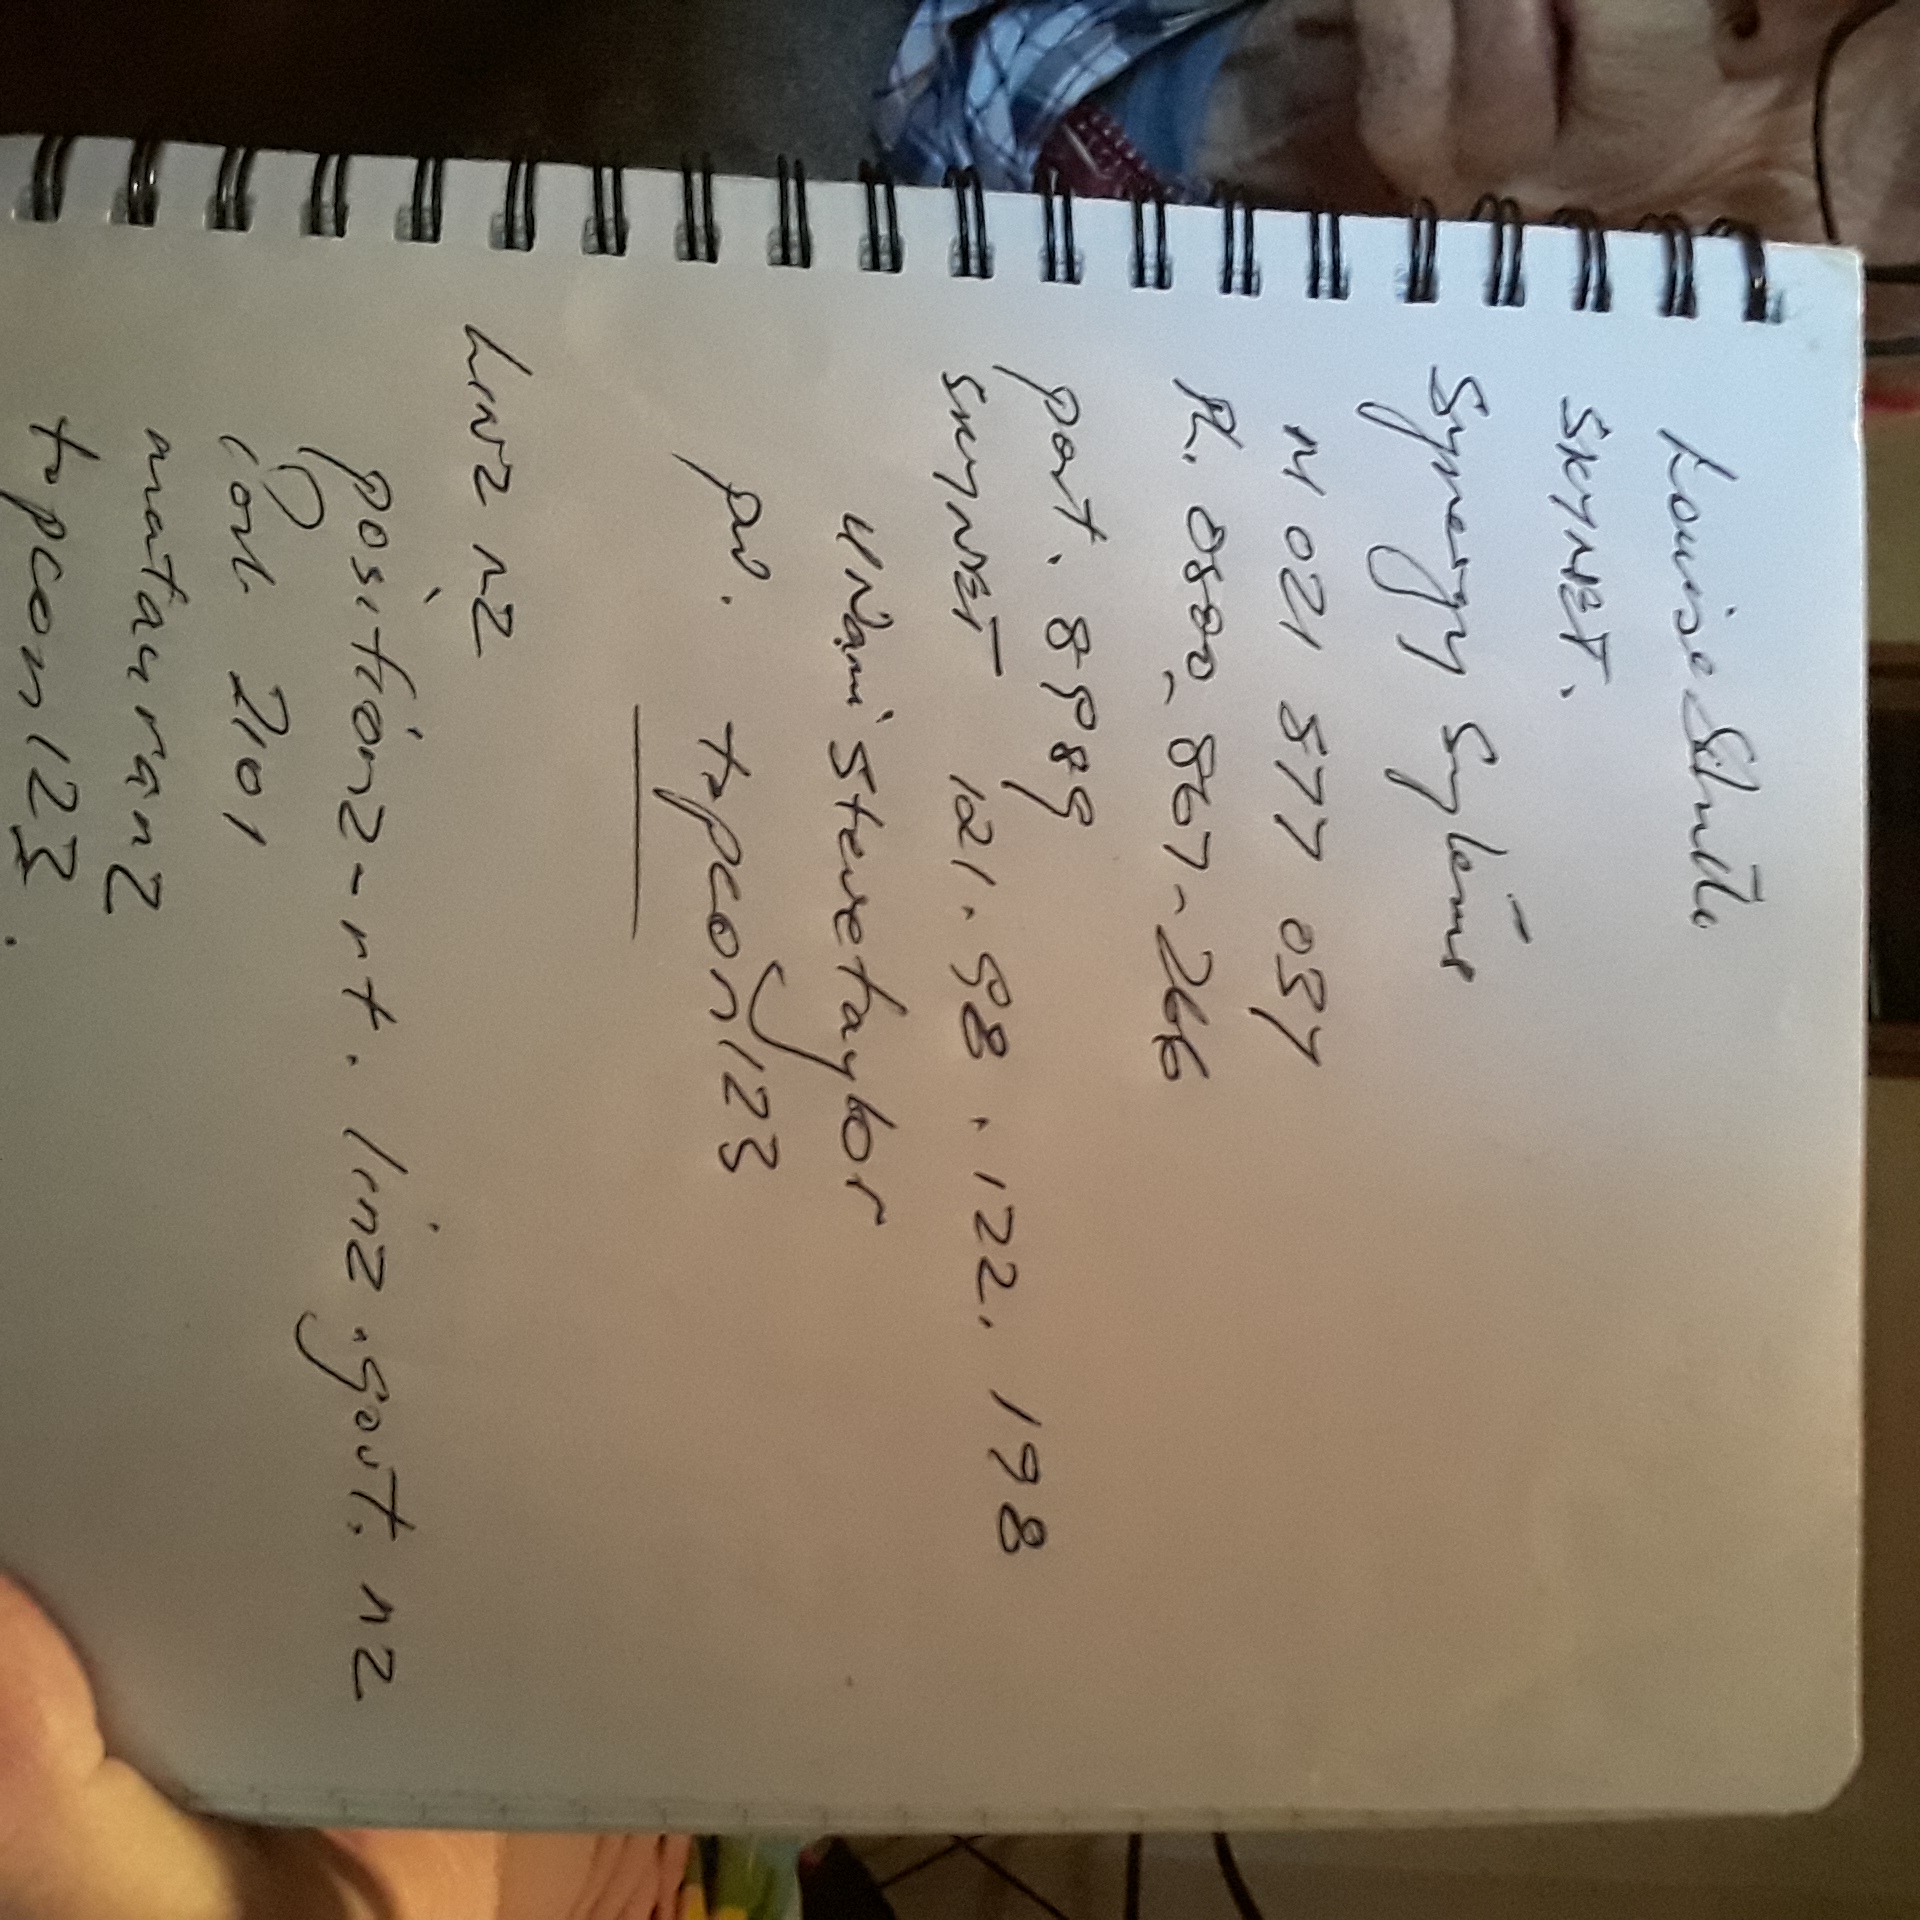 Louise
SKYNET.
Synergy Sytems
M 021 877 037
Ph. 0800-867-266
port. 8989
SKYNET 121.98.122.198
UName stevetaylor
pw. topcon123
LINZ NZ
positionz-rt.linz.govt.nz
Port 2101
matauranz
topcon123.